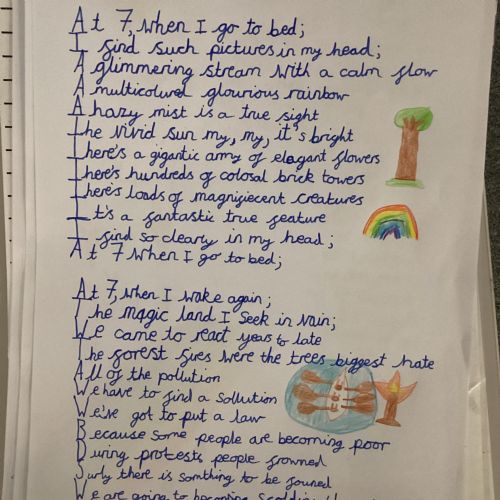 At 7, when I go to bed;
I find such pictures in my head;
A glimmering stream with a calm flow
A multicoloured glourious rainbow
A hazy mist is a true sight
The vivid sun my, my, it's bright
There's a gigantic army of elagant flowers
There's hundreds of colosal brick towers
There's loads of magnifiecent creatures
It's a fantastic true feature
I find so clearly in my head;
At 7 when I go to bed;
At 7, when I wake again;
The magic land I seek in vain;
We came to react years to late
The forest fires were the trees biggest hate
All of the pollution
We have to find a sollution
We've got to put a law
Because some people are becoming poor
During protests people frowned
Surly there is somthing to be founed
We are going to becoming